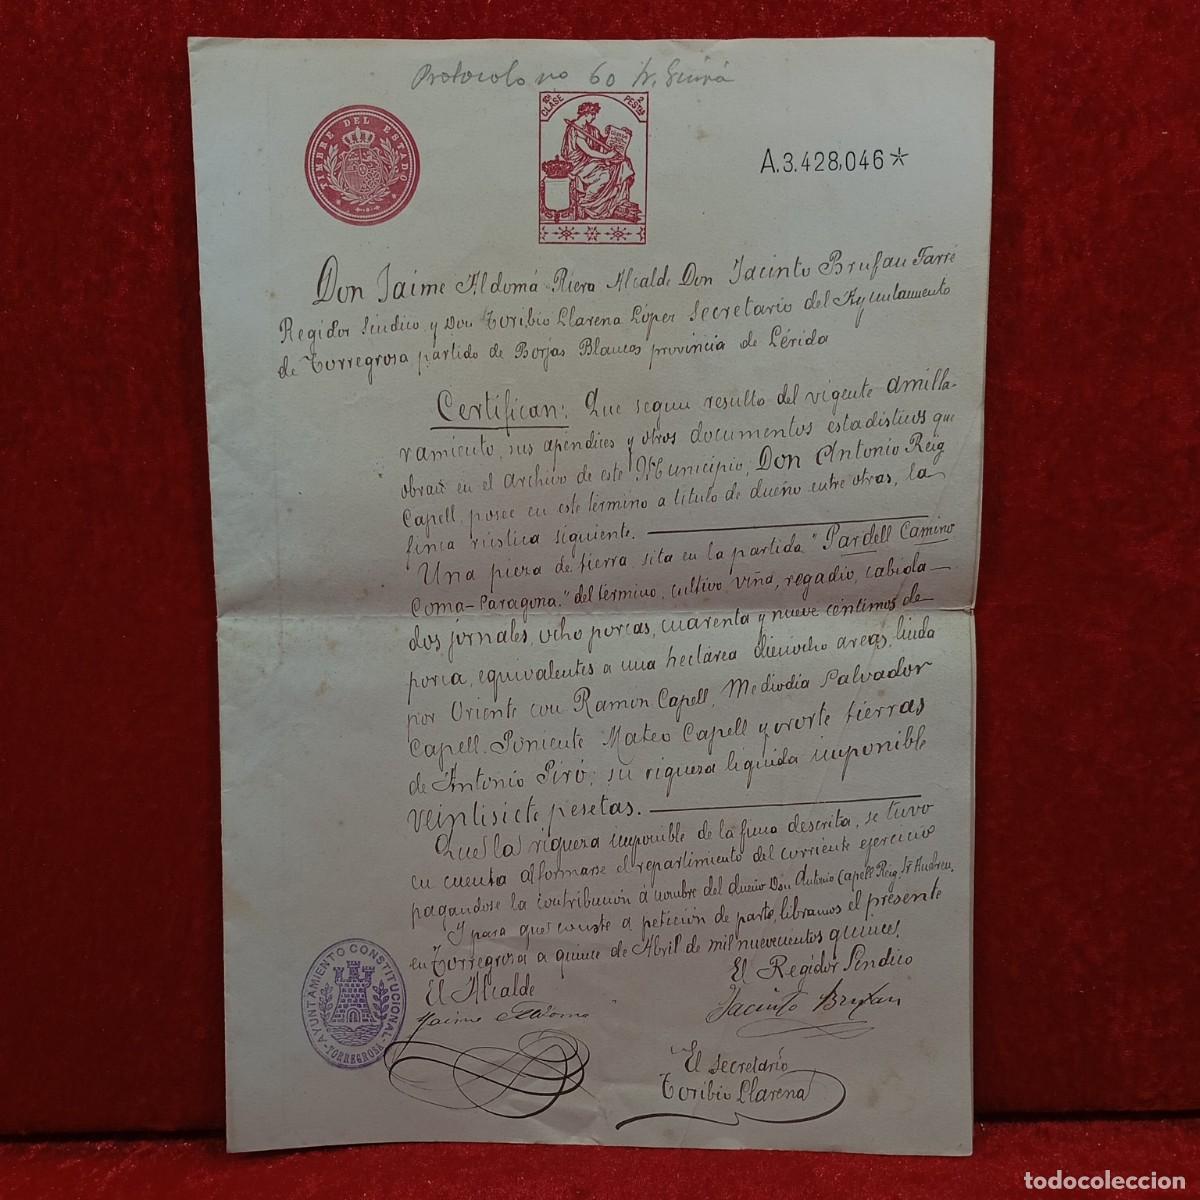 Protocolo no 60
TIMBRE DEL ESTADO
10ª CLASE
2 PESTAS
A.3.428,046*
Don Jaime Aldomá Riera Alcalde Don Jacinto Brufau Farré
Regidor Sindico y Don Toribio Llarena López Secretario del Ayuntamiento
de Torregrosa partido de Borjas Blancas provincia de Lérida
Certifican: Que segun resulta del vigente amilla-
ramiento, sus apéndices y otros documentos estadisticos que
obran en el archivo de este Municipio, Don Antonio Reig
Capell posee en este término a titulo de dueño entre otras, la
finca rústica siguiente.
Una pieza de tierra, sita en la partida "Pardell Camino
Coma-Taragona" del término, cultivo viña, regadio, cabida
dos jornales, ocho porcas, cuarenta y nueve céntimos de
porca, equivalentes a una hectárea dieciocho areas, linda
por Oriente con Ramon Capell, Mediodia Salvador
Capell Poniente Mateo Capell y norte tierras
de Antonio Piró; su riqueza liquida imponible
veintisiete pesetas.
Que la riqueza imponible de la finca descrita, se tuvo
en cuenta al formarse el repartimiento del corriente ejercicio
pagandose la contribución á nombre del dueño Don Antonio Capell Reig, Andreu.
Y para que conste a petición de parte, libramos el presente
en Torregrosa a quince de Abril de mil nuevecientos quince.
El Alcalde
El Regidor Sindico
Jaime Aldoma
Jacinto Brufau
El secretário
Toribio Llarena
AYUNTAMIENTO CONSTITUCIONAL
-TORREGROSA-
todocoleccion